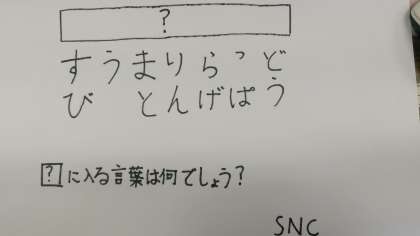 ?
すうまりらっど
び とんげぱう
?に入る言葉は何でしょう?
SNC